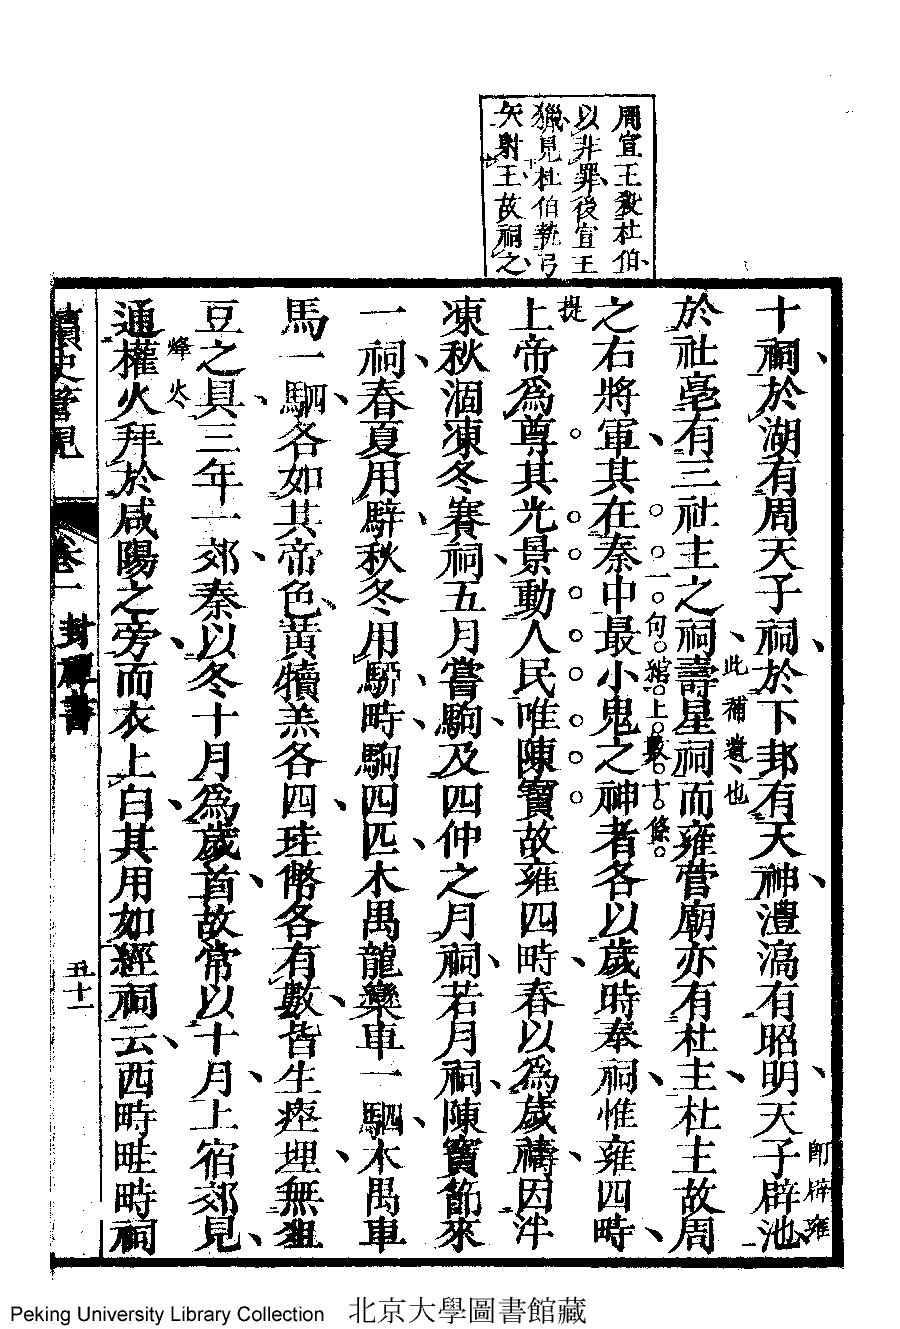 周宣王殺杜伯
以非罪後宣王
獵見杜伯執弓
矢射王故祠之
十祠於湖有周天子祠於下邽有天神灃滈有昭明天子辟池
即辟雍
於社亳有三社主之祠壽星祠而雍菅廟亦有杜主杜主故周
此補遺也
之右將軍其在秦中最小鬼之神者各以歲時奉祠惟雍四畤
一句綰上數十條
上帝爲尊其光景動人民唯陳寶故雍四畤春以爲歲禱因泮
提
凍秋涸凍冬賽祠五月嘗駒及四仲之月祠若月祠陳寶節來
一祠春夏用騂秋冬用駵畤駒四匹木禺龍欒車一駟木禺車
馬一駟各如其帝色黃犢羔各四珪幣各有數皆生瘞埋無俎
豆之具三年一郊秦以冬十月爲歲首故常以十月上宿郊見
通權火拜於咸陽之旁而衣上白其用如經祠云西畤畦畤祠
烽火
讀史管見
卷一 封禪書
五十一
Peking University Library Collection 北京大學圖書館藏